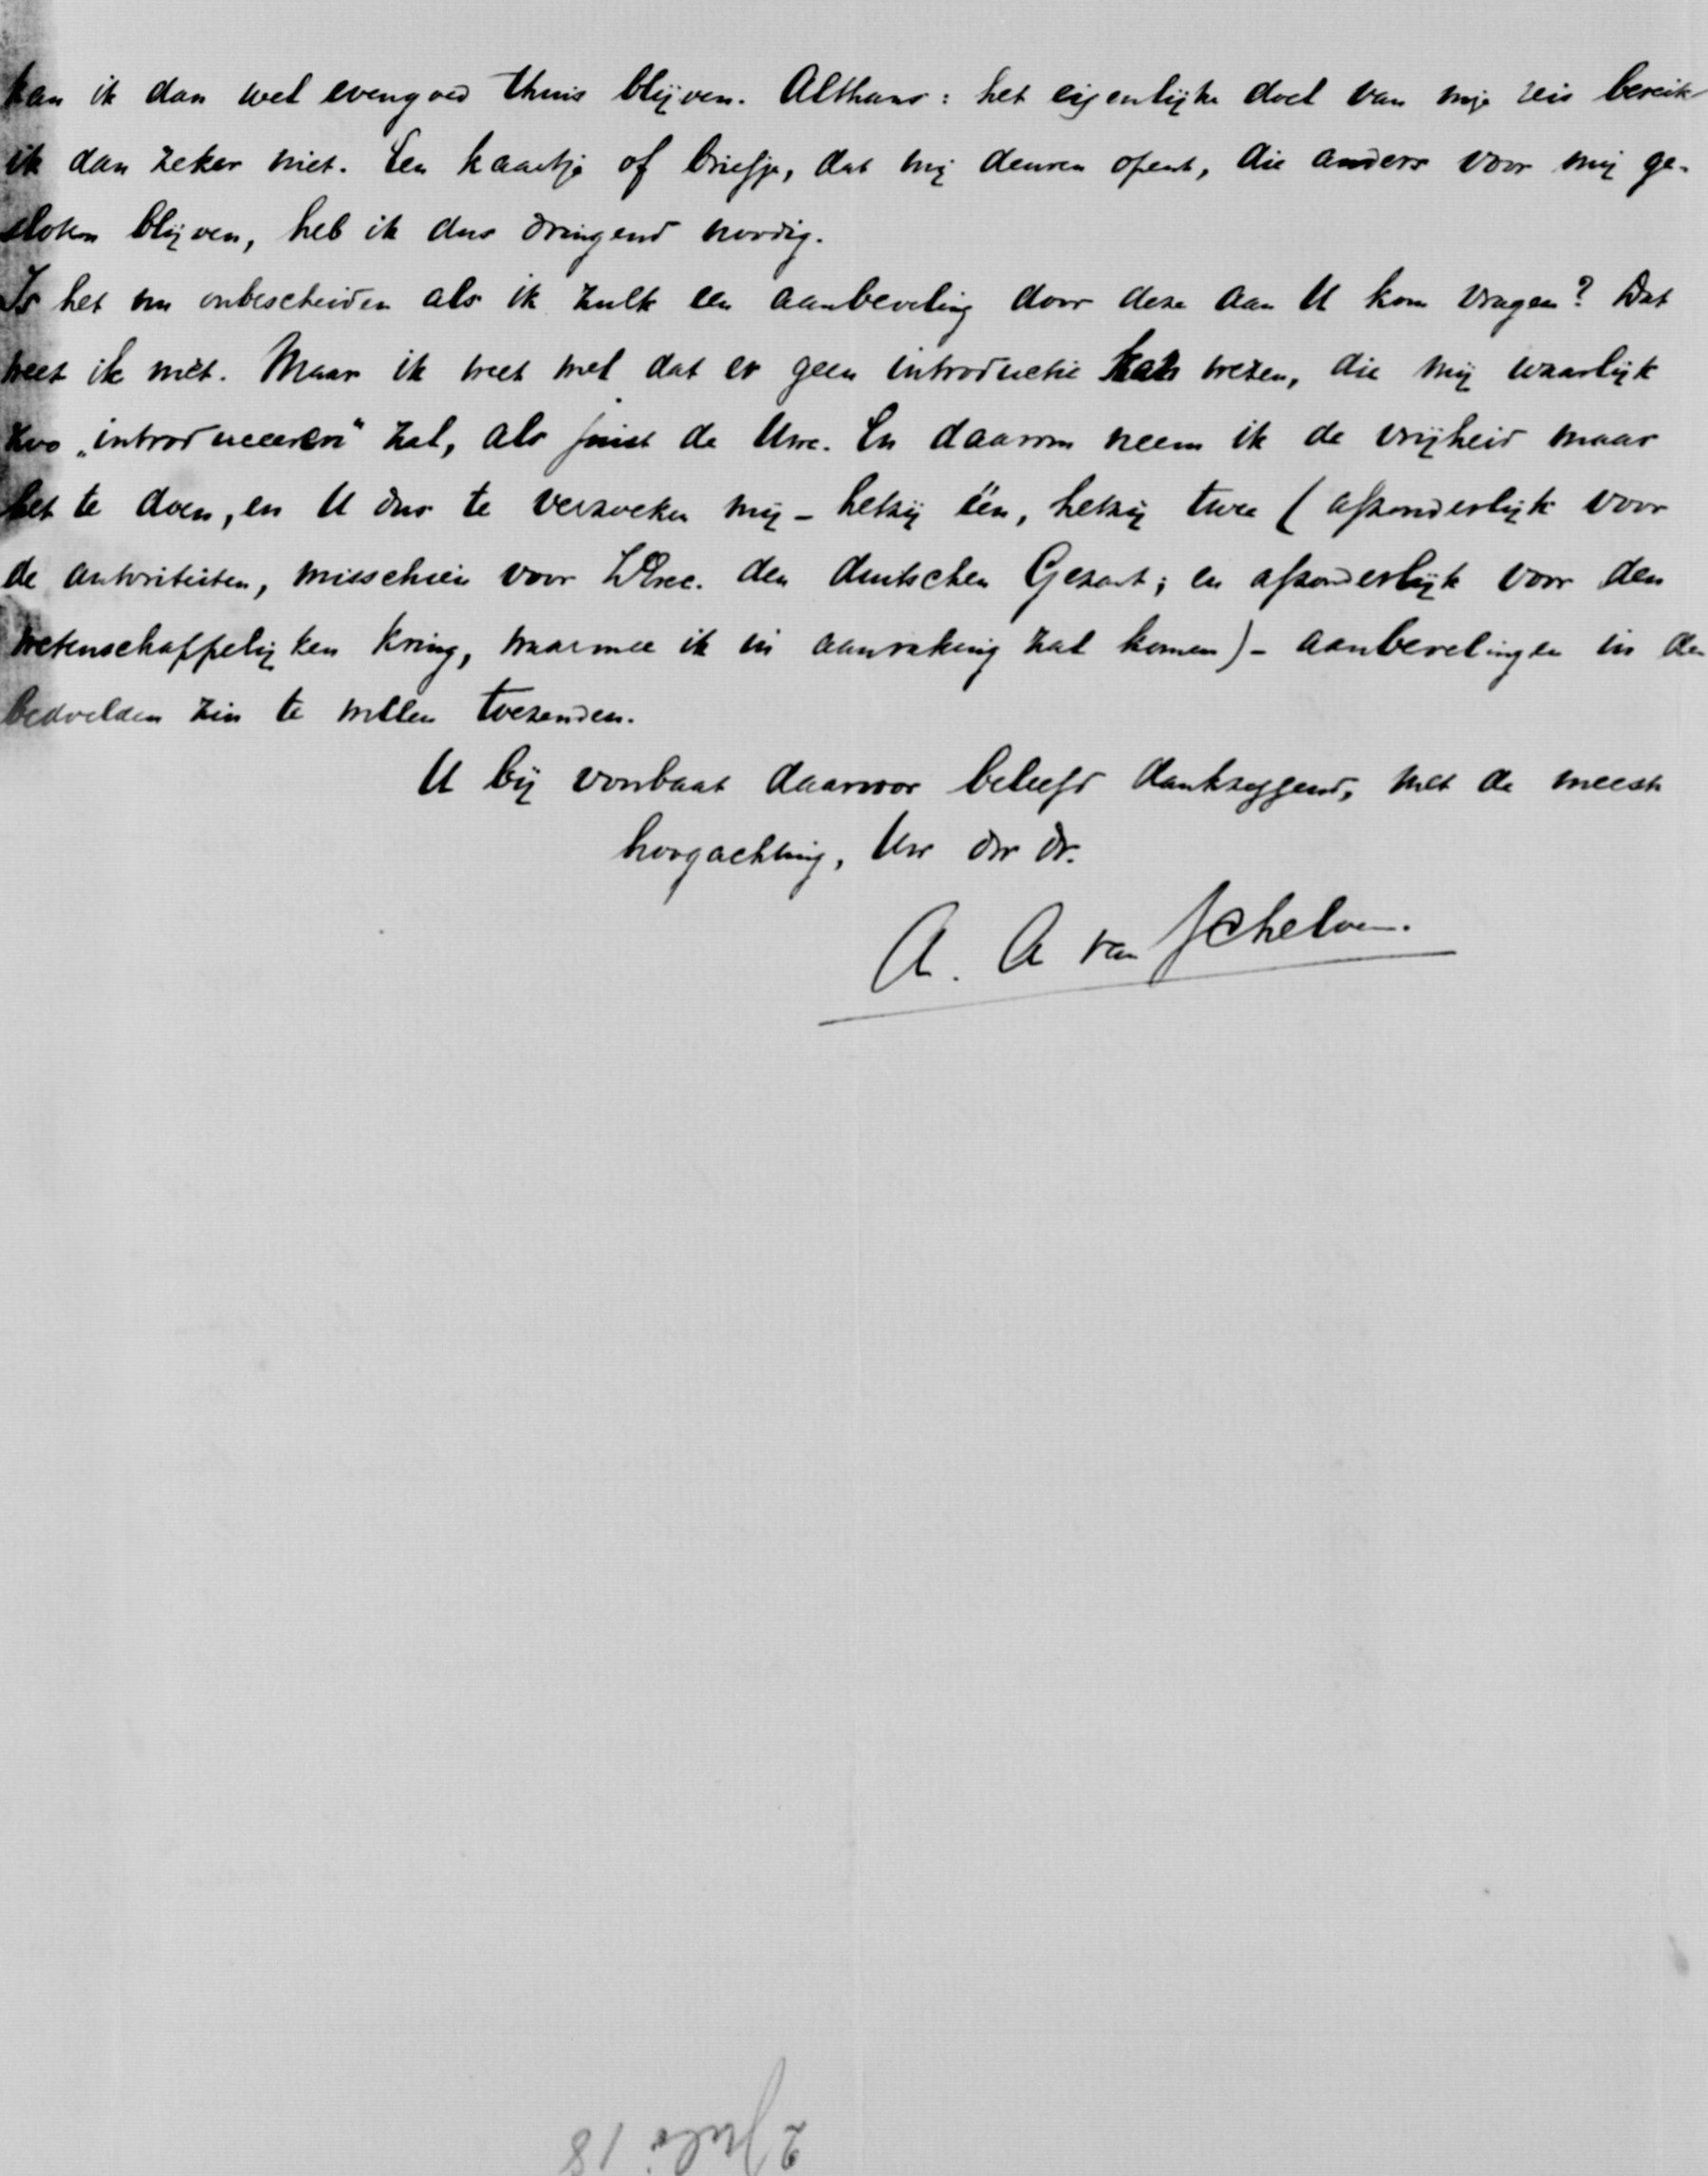 kan ik dan wel evengoed thuis blijven. Althans: het eigenlijke doel van mijn reis bereik
ik dan zeker niet. Een kaartje of briefje, dat mij deuren opent, die anders voor mij ge-
sloten blijven, heb ik dus dringend noodig.
Is het nu onbescheiden als ik zulk een aanbeveling door deze aan U kom vragen? Dat
weet ik niet. Maar ik weet wel dat er geen introductie kan wezen, die mij waarlijk
zoo „introduceeren" zal, als juist de Uwe. En daarom neem ik de vrijheid maar
het te doen, en U dus te verzoeken mij - hetzij één, hetzij twee (afzonderlijk voor
de autoriteiten, misschien voor ZExc. den duitschen Gezant; en afzonderlijk voor den
wetenschappelijken kring, waarmee ik in aanraking zal komen) - aanbevelingen in den
bedoelden zin te willen toezenden.
U bij voorbaat daarvoor beleefd dankzeggend, met de meeste
hoogachting, Uw dw dr.
A. A van Schelven.
2 Juli 18